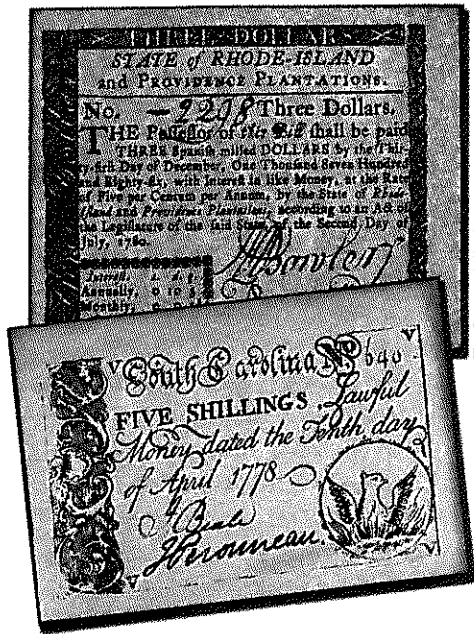 THREE DOLLARS
STATE of RHODE-ISLAND
and PROVIDENCE PLANTATIONS.
No. 2208 Three Dollars.
THE Possessor of this Bill shall be paid
THREE Spanish milled DOLLARS by the Thir-
ty-first Day of December, One Thousand Seven Hundred
and Eighty-six, with Interest in like Money, at the Rate
of Five per Centum per Annum, by the State of Rhode-
Island and Providence Plantations, according to an Act of
the Legislature of the said State, of the Second Day of
July, 1780.
Interest. s. d. q.
Annually, 0 10 3
Monthly, 0
V V
South Carolina No 640
FIVE SHILLINGS Lawful
Money dated the Tenth day
of April 1778
Beale
V V